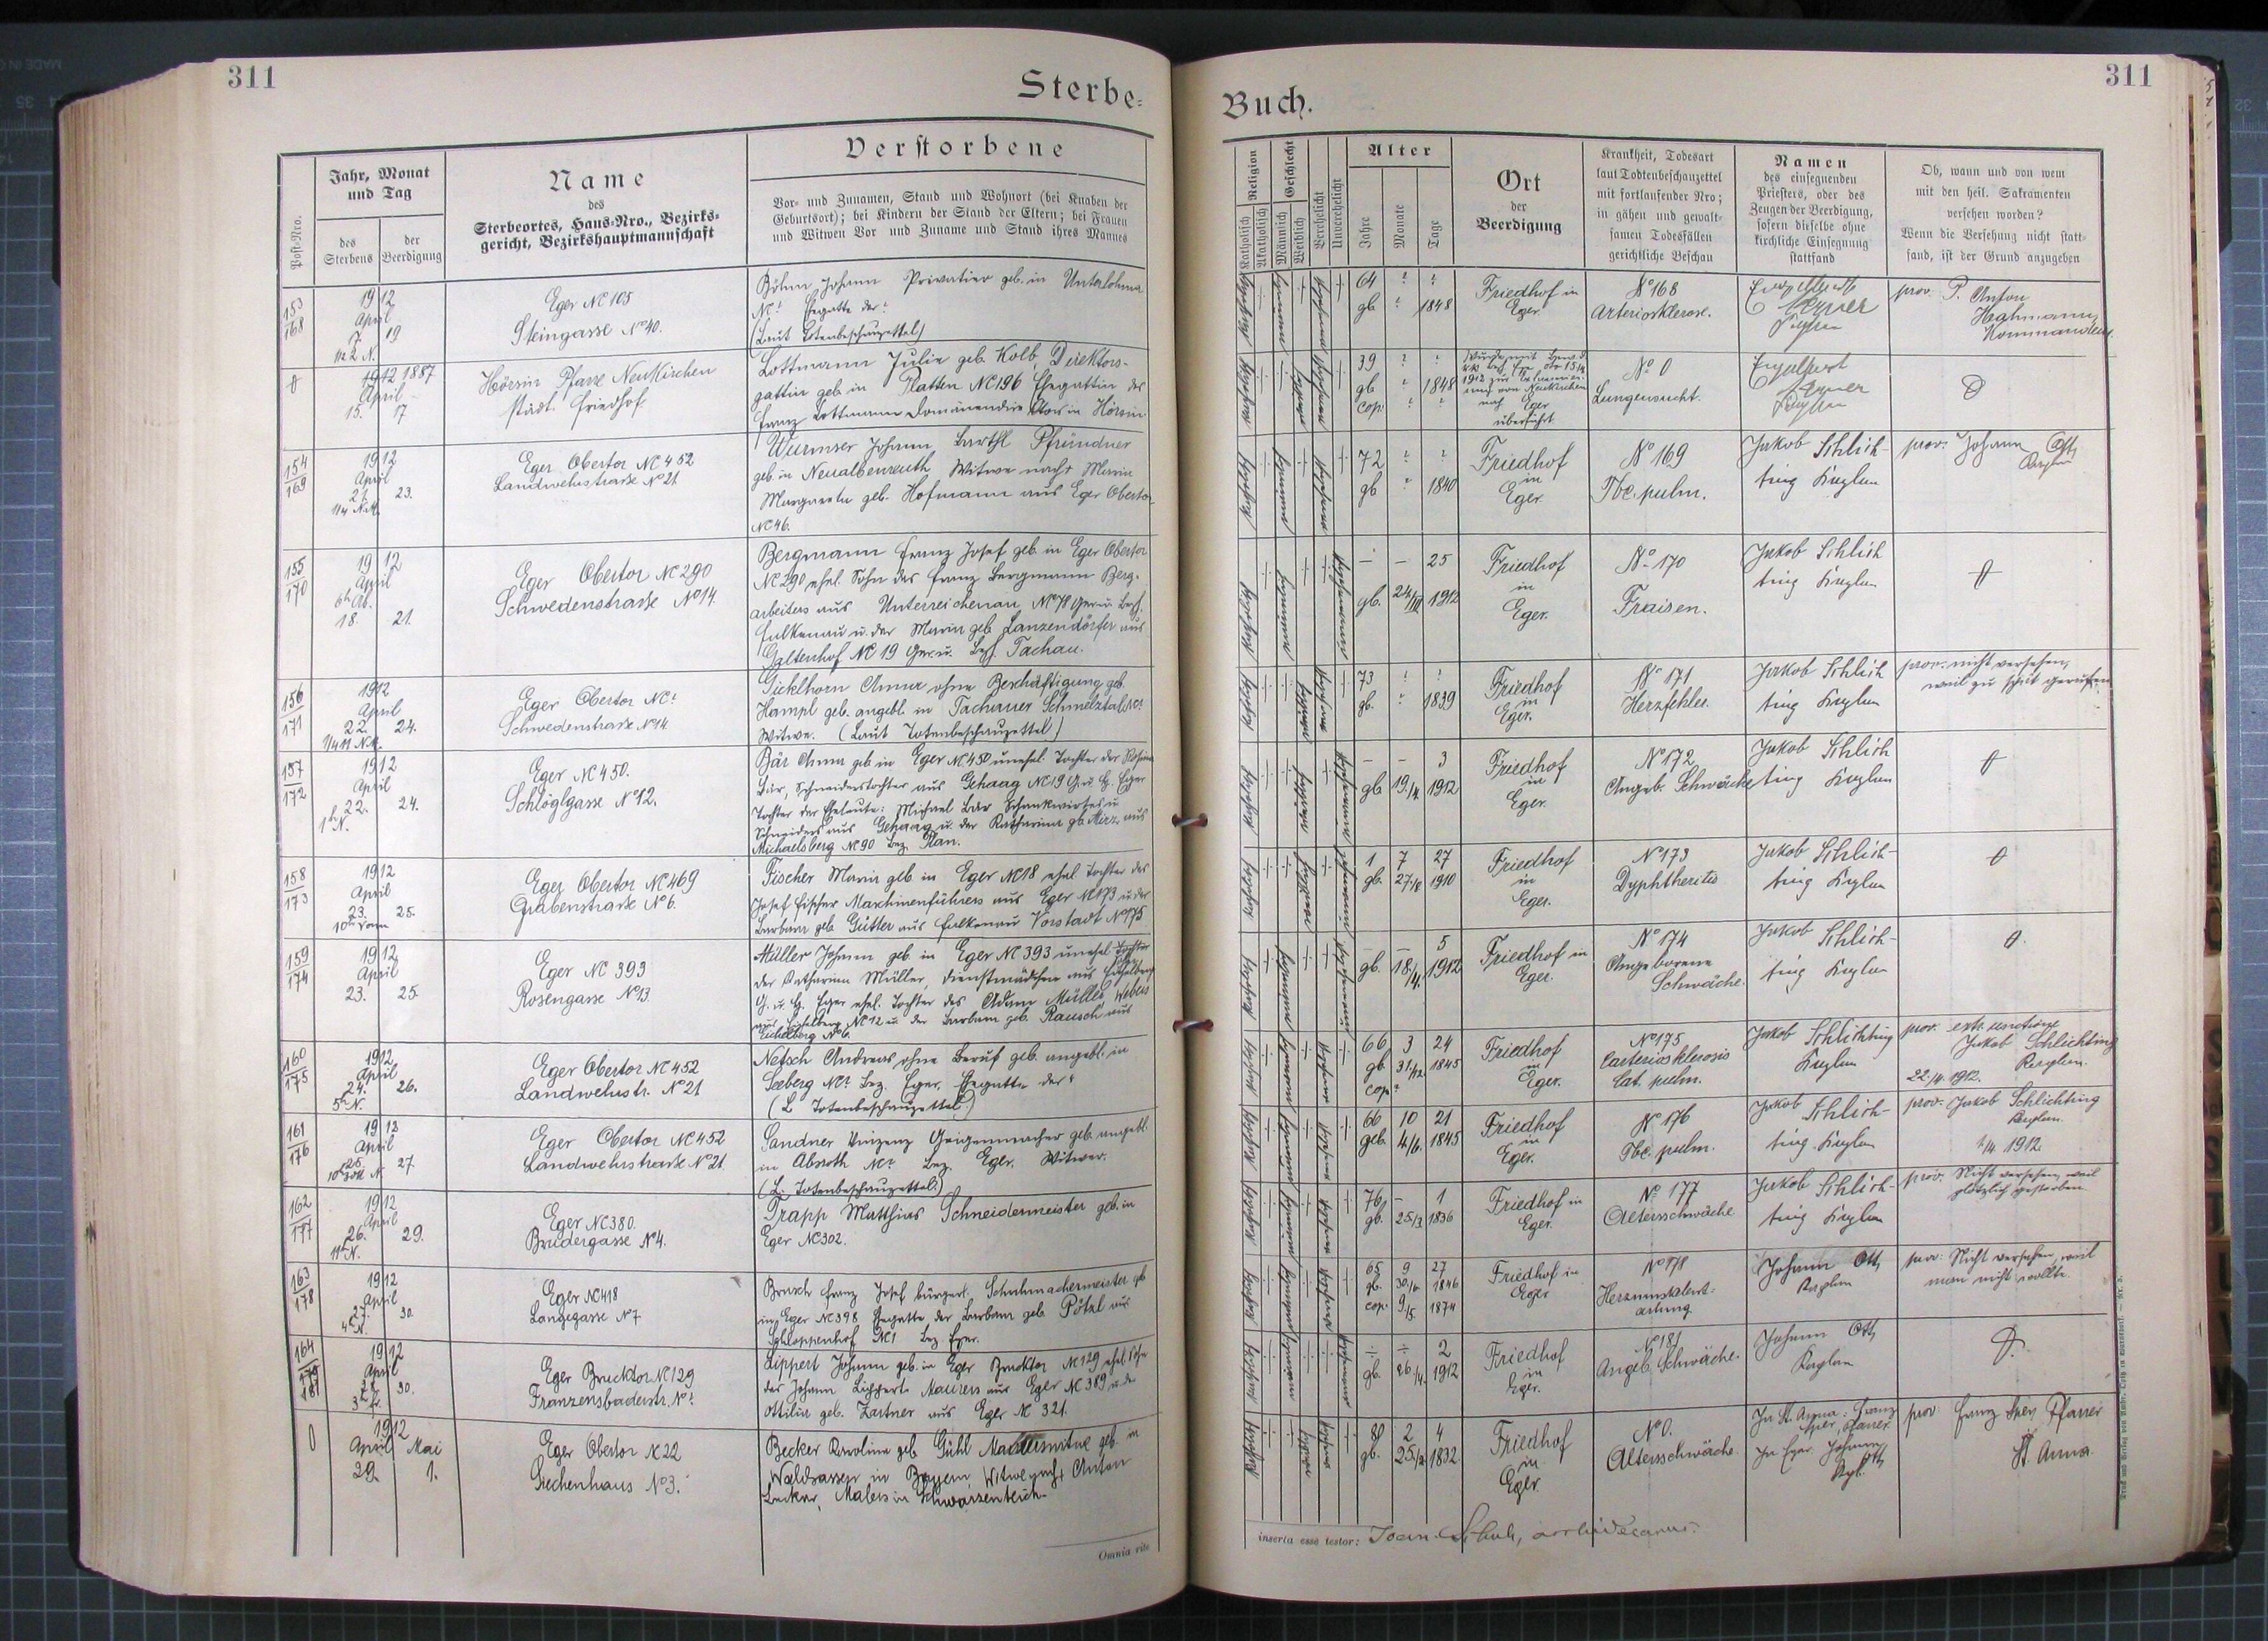 311
Sterbe-
Jahr, Monat
und Tag
Name
des
Sterbeortes, Haus-Nro., Bezirks-
gericht, Bezirkshauptmannschaft
Verstorbene
Vor- und Zunamen, Stand und Wohnort (bei Knaben der
Geburtsort); bei Kindern der Stand der Eltern; bei Frauen
und Witwen Vor und Zuname und Stand ihres Mannes
Post-Nro.
des
Sterbens
der
Beerdigung
153
168
1912
April
7. 19
Eger NC 105
Steingasse No 40.
Böhm Johann Privatier geb. in Unterlohma
NC? Ehegatte der?
(Laut Totenbeschauzettel)
0
1912 1887
April
15. 17
Hörsin Pfarre Neukirchen
städt. Friedhof
Lottmann Julie geb. Kolb, Direktors-
gattin geb. in Platten NC 196 Ehegattin des
Franz Lottmann Domänendirektors in Hörsin
154
169
1912
April
21. 23.
Eger Obertor NC 452
Landwehrstraße No 21
Wurmser Johann Barthl Pfründner
geb. in Neualbenreuth, Witwer nach Maria
Margareta geb. Hofmann aus Eger Obertor
NC 46.
155
170
1912
April
6h Ab.
18. 21.
Eger Obertor NC 290
Schwedenstraße No 14.
Bergmann Franz Josef geb. in Eger Obertor
NC 290 ehel. Sohn des Franz Bergmann Berg-
arbeiters aus Unterreichenau NC 78 Ger. u. Bezh.
Falkenau u. der Maria geb. Lanzendörfer aus
Galtenhof NC 19 Ger. u. Bezh. Tachau.
156
171
1912
April
22. 24.
Eger Obertor NC?
Schwedenstraße No 14.
Gicklhorn Anna ohne Beschäftigung geb.
Hampl geb. angebl. in Tachauer Schmelztal NC?
Witwe. (Laut Totenbeschauzettel)
157
172
1912
April
22. 24.
1h N.
Eger NC 450.
Schlöglgasse No 12.
Bär Anna geb. in Eger NC 450 unehel. Tochter der Rosina
Bär, Schneiderstochter aus Gehaag NC 19 G. u. H. Eger
Tochter der Eheleute: Michael Bär Schankwirtes u.
Schneiders aus Gehaag u. der Katharina geb. März aus
Michaelsberg NC 90 Bez. Plan.
158
173
1912
April
23. 25.
10h Vorm
Eger Obertor NC 469
Grabenstraße No 6.
Fischer Maria geb. in Eger NC 18 ehel. Tochter des
Josef Fischer Maschinenführers aus Eger NC 173 u. der
Barbara geb. Gütter aus Falkenau Vorstadt No 175
159
174
1912
April
23. 25.
Eger NC 393
Rosengasse No 13.
Müller Johann geb. in Eger NC 393 unehel.
der Katharina Müller, Dienstmädchen aus
G. u. H. Eger ehel. Tochter des Adam Müller, Webers
NC 12 u. der Barbara geb. Rausch aus
No 6.
160
175
1912
April
24. 26.
5h N.
Eger Obertor NC 452
Landwehrstr. No 21
Netsch Andreas ohne Beruf geb. angebl. in
Seeberg NC? Bez. Eger. Ehegatte der?
(L. Totenbeschauzettel.)
161
176
1912
April
25. 27.
Eger Obertor NC 452
Landwehrstraße No 21
Sandner Vinzenz Geigenmacher geb. angebl.
in Absroth NC? Bez. Eger. Witwer.
(L. Totenbeschauzettel.)
162
177
1912
April
26. 29.
11h N.
Eger NC 380.
Brudergasse No 4.
Trapp Matthias Schneidermeister geb. in
Eger NC 302.
163
178
1912
April
27. 30.
4h N.
Eger NC 418
Langegasse No 7
Brusch Franz Josef bürgerl. Schuhmachermeister gb
in Eger NC 398 Ehegatte der Barbara geb. Pötzl aus
Schloppenhof NC 1 Bez. Eger.
164
179
181
1912
April
30.
Eger Brucktor NC 129
Franzensbaderstr. No?
Lippert Johann geb. in Eger Brucktor NC 129 ehel. Sohn
des Johann Lippert Maurers aus Eger NC 389 u. der
Ottilie geb. Zartner aus Eger NC 321.
0
1912
April Mai
29. 1.
Eger Obertor NC 22
Siechenhaus No 3.
Becker Karoline geb. Gühl Malerswitwe geb. in
Waldsassen in Bayern, Witwe nach Anton
Becker, Malers in Schwarzenteich.
Omnia rite
Buch.
311
Religion
Katholisch
Akatholisch
Geschlecht
Männlich
Weiblich
Verehelicht
Unverehelicht
Alter
Jahre
Monate
Tage
Ort
der
Beerdigung
Krankheit, Todesart
laut Todtenbeschauzettel
mit fortlaufender Nro;
in gähen und gewalt-
samen Todesfällen
gerichtliche Beschau
Namen
des einsegnenden
Priesters, oder des
Zeugen der Beerdigung,
sofern dieselbe ohne
kirchliche Einsegnung
stattfand
Ob, wann und von wem
mit den heil. Sakramenten
versehen worden?
Wenn die Versehung nicht statt-
fand, ist der Grund anzugeben
64 ? ?
gb ? 1848
Friedhof in
Eger
No 168
Arteriosklerose.
prov. P. Anton
Hahmann,
Kommandeur
39 ? ?
gb ? 1848
cop. ? ?
nach Eger
überführt
No 0
Lungensucht.
0
72 ? ?
gb ? 1840
Friedhof
in
Eger.
No 169
Tbc. pulm.
Jakob Schlich-
ting Kaplan
prov. Johann Ott
Kaplan
— — 25
gb. 24/III 1912
Friedhof
in
Eger.
No 170
Fraisen.
Jakob Schlich
ting Kaplan
0
73 ? ?
gb. ? 1839
Friedhof
in
Eger.
No 171
Herzfehler.
Jakob Schlich
ting Kaplan
prov. nicht versehen,
weil zu spät gerufen.
— — 3
gb 19./4 1912
Friedhof
in
Eger.
No 172
Angeb. Schwäche
Jakob Schlich
ting Kaplan
0
1 7 27
gb. 27./8 1910
Friedhof
in
Eger.
No 173
Dyphtheritis
Jakob Schlich-
ting Kaplan
0
— — 5
gb. 18./4. 1912
Friedhof in
Eger.
No 174
Angeborene
Schwäche.
Jakob Schlich-
ting Kaplan
0.
66 3 24
gb. 31./12. 1845
cop. ?
Friedhof
in
Eger.
No 175
Carteriosklerosis
Cat. pulm.
Jakob Schlichting
Kaplan
prov. extr. unctione
Jakob Schlichting
Kaplan.
22./4. 1912.
66 10 21
geb. 4/6. 1845
Friedhof
in
Eger.
No 176
Tbc. pulm.
Jakob Schlich-
ting Kaplan
prov. Jakob Schlichting
Kaplan.
/4 1912.
76 — 1
gb. 25./3 1836
Friedhof in
Eger.
No 177
Altersschwäche
Jakob Schlich-
ting Kaplan
prov. Nicht versehen, weil
plötzlich gestorben
65 9 27
gb. 30./6 1846
cop. 9/5. 1874
Friedhof in
Eger
No 178
Herzmuskelent-
artung
Johann Ott
Kaplan
prov. Nicht versehen, weil
man nicht wollte.
÷ ÷ 2
gb. 26/4. 1912
Friedhof
in
Eger.
No 181
Angeb. Schwäche.
Johann Ott
Kaplan
0.
80 2 4
gb. 25./2 1832.
Friedhof
in
Eger
No 0.
Altersschwäche
In St. Anna: Franz
Pfarrer
In Eger Johann
Ott Kapl.
prov. Franz Pfarrer
St. Anna.
inserta esse testor: Joan. archidecanus.